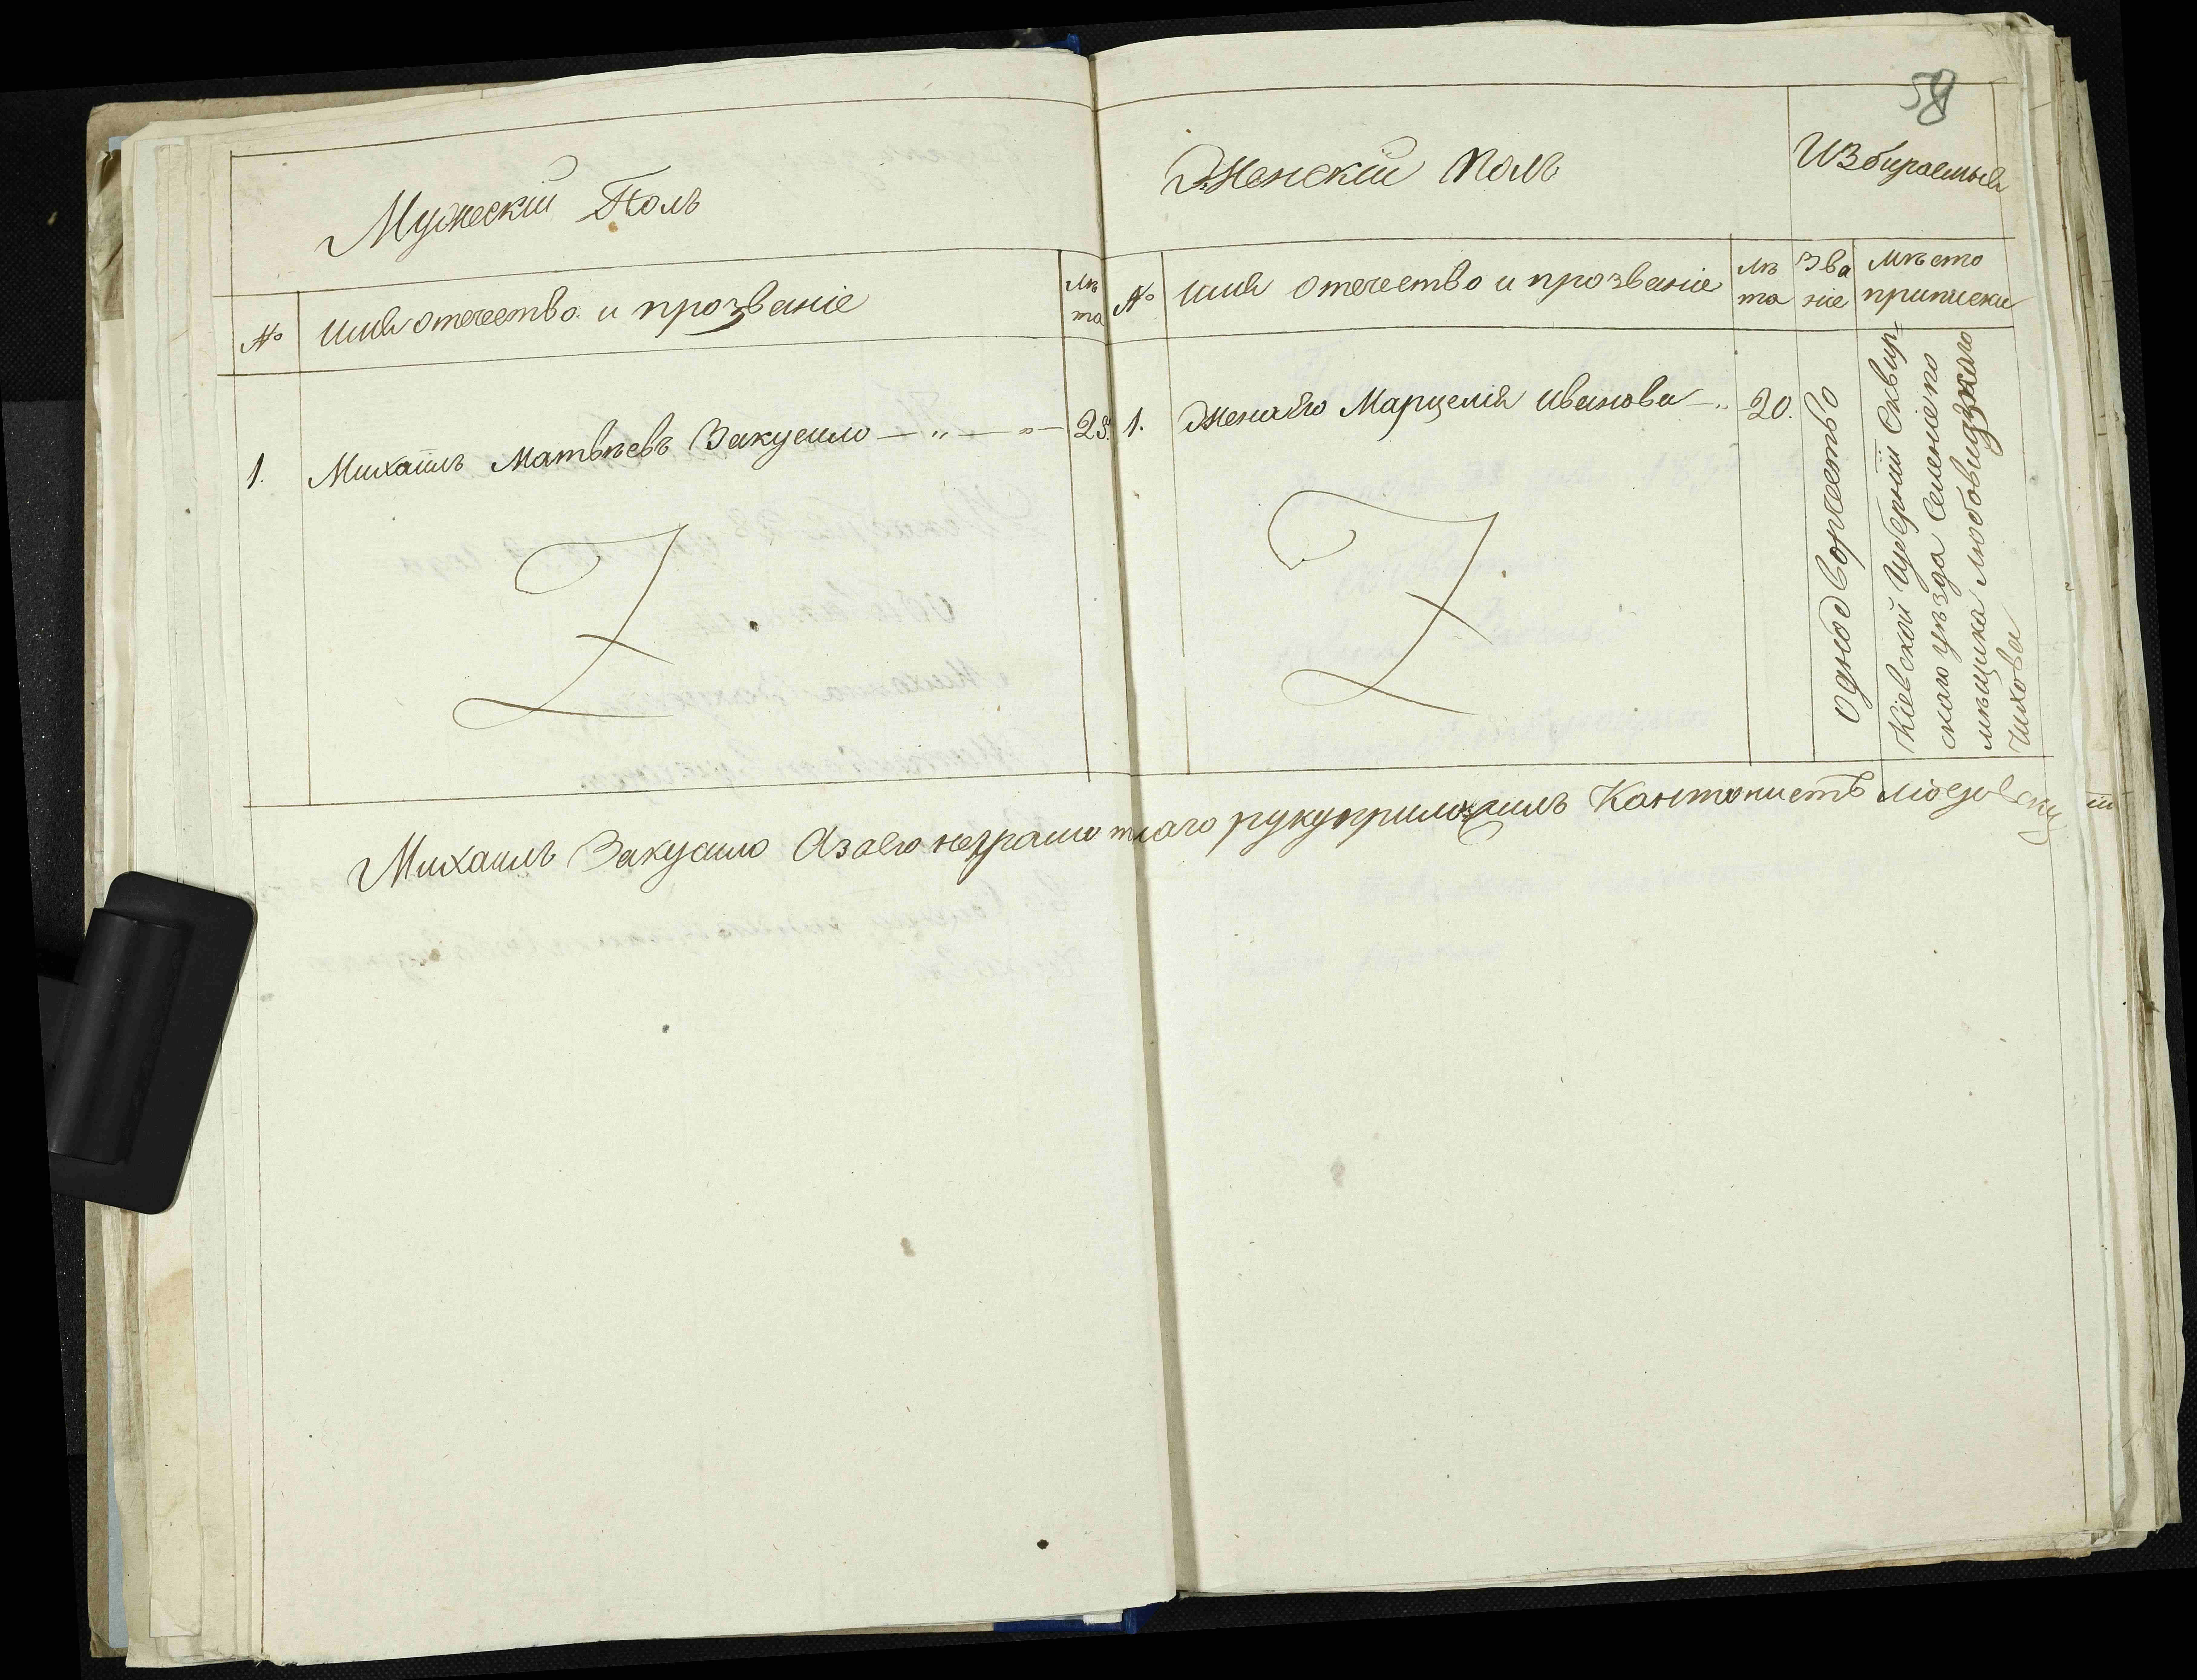 58
Мужескій Полъ
Женскій Полъ
Избираемыя
№ имя отечество и прозваніе лѣ та
№ имя отечество и прозваніе лѣ та
Зва ніе
мѣсто приписки
1. Михаилъ Матвѣевъ Закусило — „ — „ —
1. Жена его Марцелія иванова — „ 20.
однодворчество
Кіевской Губерніи Сквир=
скаго уѣзда Селеніе по
мѣщика
Чихова
Михаилъ Закусило Азаего неграмотнаго руку приложилъ Кантонистъ